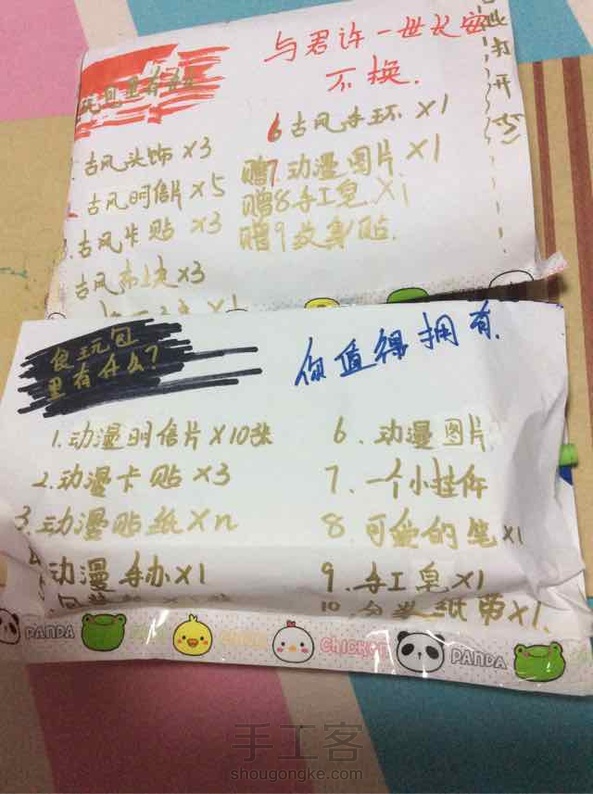 与君许一世长安
不换.
此打开
古风头饰×3
古风明信片×5
古风卡贴×3
6古风手环×1
赠7动漫图片×1
赠8手工皂×1
赠9纹身贴.
食玩包
里有什么?
你值得拥有.
1.动漫明信片×10张
2.动漫卡贴×3
3.动漫贴纸×n
动漫手办×1
6、动漫图片
7、一个小挂件
8、可爱的笔×1
9、手工皂×1
10、分装纸带×1
PANDA
CHICKEN
PANDA
手工客
shougongke.com